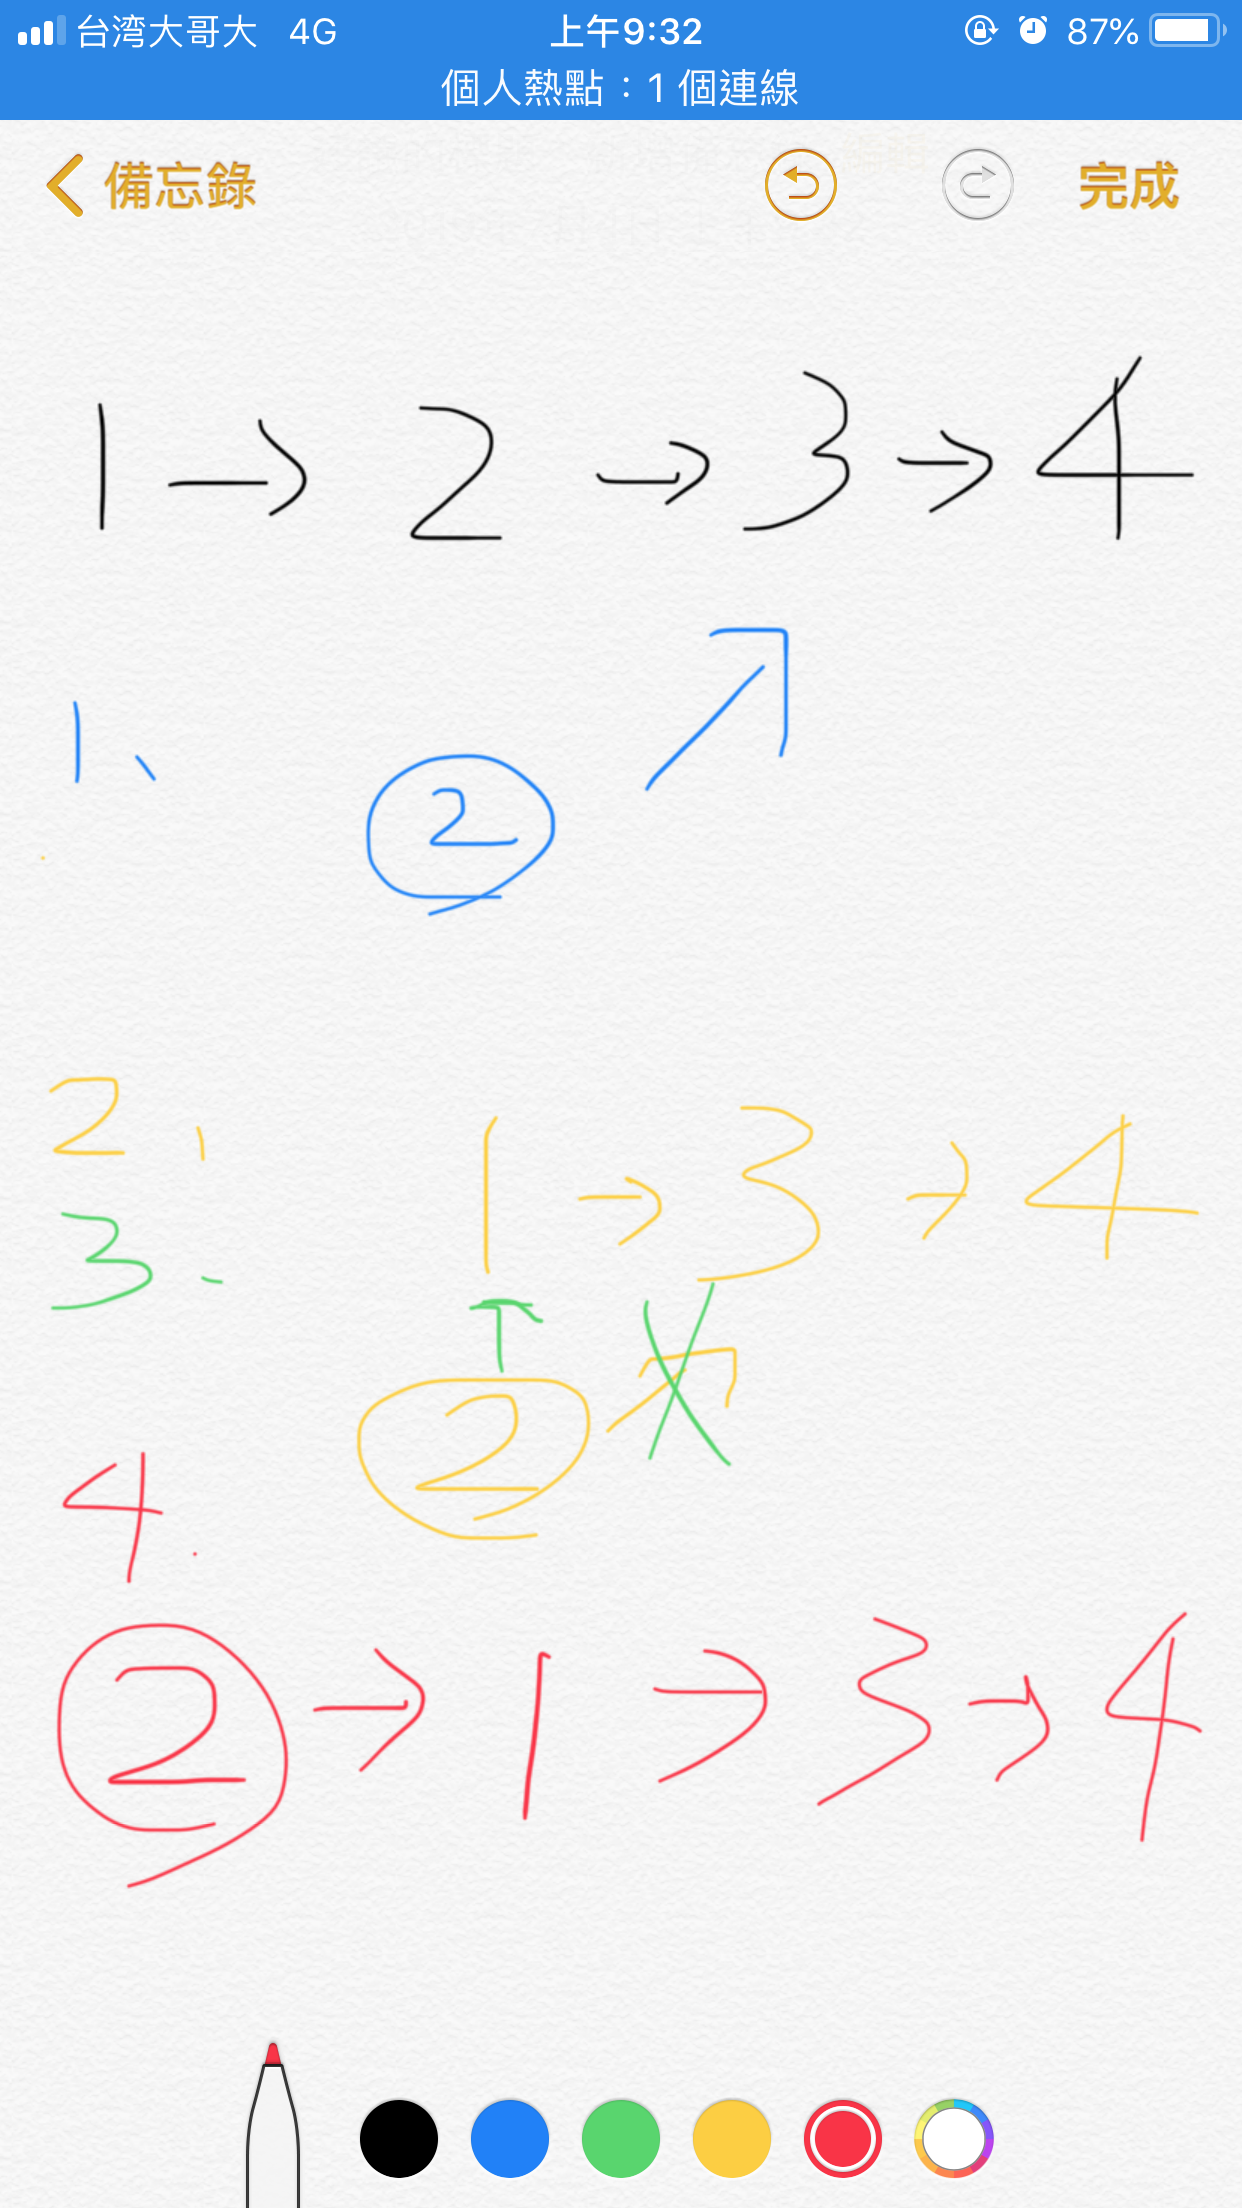 台湾大哥大 4G 上午9:32 87%
個人熱點：1 個連線
備忘錄 完成
1 → 2 → 3 → 4
1、
②
2、 1 → 3 → 4
3.
②
4.
② → 1 → 3 → 4